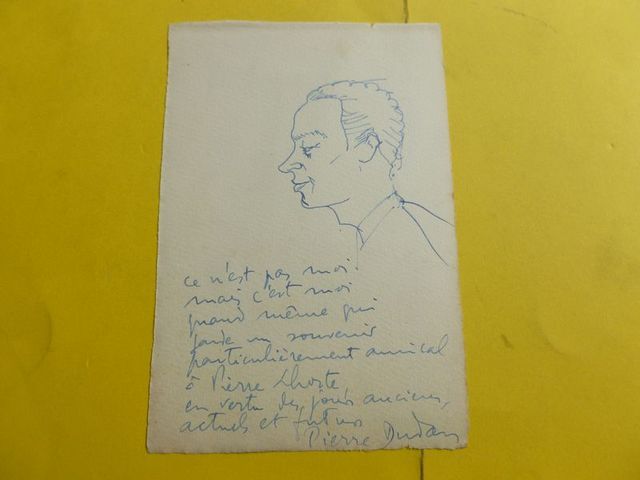 ce n'est pas moi
mais c'est moi
quand même qui
garde un souvenir
particulièrement amical
à Pierre Lhoste,
en vertu des jours anciens,
actuels et futurs
Pierre Dudan